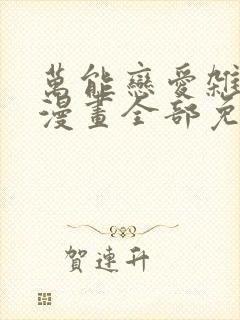 萬能戀愛雜
漫畫全部免
賀連升